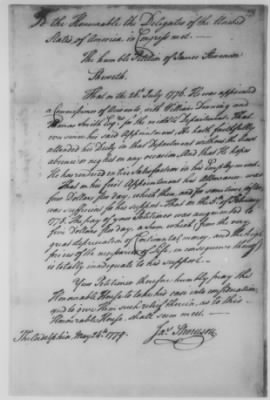 To the Honourable the Delegates of the United
States of America in Congress met —
The humble Petition of James Stevenson
Sheweth
That on the 26th July 1776. He was appointed
a Commissioner of Accounts, with William Denning and
Esqrs for the Department. That
his said Appointment, He hath faithfully
attended his Duty in that Department without the least
absence or neglect on any occasion And that He hopes
He has rendered Satisfaction in his Employment.
That on his first Appointment his Allowance was
four Dollars per day, which then, and for some time, after,
was sufficient for his support. That on the of February
1778. The pay of your Petitioner was augmented to
five Dollars per day, a sum which from the very
great depreciation of Continental money, and the high
prices of the necessaries of Life, in consequence thereof
is totally inadequate to his Support —
Your Petitioner therefore humbly prays the
Honourable House to take his case into consideration,
and to give him such relief therein, as to this
Honourable House shall seem meet. —
Philadelphia May 26th 1779. Jas Stevenson